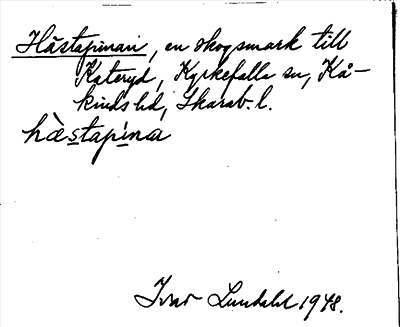 Hästapinan, en skogsmark till
Kateryd, Kyrkefalla sn, Kå-
kinds hd, Skarab. l.
hàstapìna
Ivar Lundahl 1948.